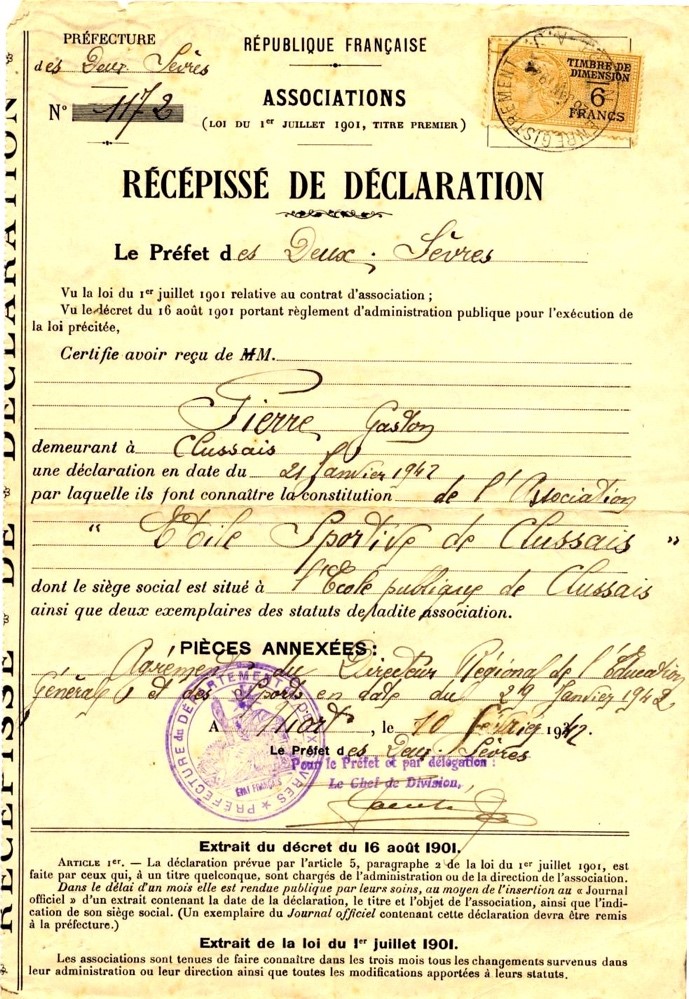 RÉCÉPISSÉ DE DÉCLARATION
PRÉFECTURE
des Deux Sèvres
N° 1172
RÉPUBLIQUE FRANÇAISE
ASSOCIATIONS
(LOI DU 1er JUILLET 1901, TITRE PREMIER)
TIMBRE DE
DIMENSION
6
FRANCS
ENREGISTREMENT
RÉCÉPISSÉ DE DÉCLARATION
Le Préfet des Deux-Sèvres
Vu la loi du 1er juillet 1901 relative au contrat d'association ;
Vu le décret du 16 août 1901 portant règlement d'administration publique pour l'exécution de
la loi précitée,
Certifie avoir reçu de MM.
Pierre Gaston
demeurant à Clussais
une déclaration en date du 21 Janvier 1942
par laquelle ils font connaître la constitution de l'Association
" Etoile Sportive de Clussais "
dont le siège social est situé à l'Ecole publique de Clussais
ainsi que deux exemplaires des statuts de ladite association.
PIÈCES ANNEXÉES :
Agrément du Directeur Régional de l'Education
Générale et des Sports en date du 29 Janvier 1942
A Niort, le 10 février 1942.
Le Préfet des Deux-Sèvres
Pour le Préfet et par délégation :
Le Chef de Division,
PRÉFECTURE du DÉPARTEMENT DES DEUX-SÈVRES
ETAT FRANÇAIS
Extrait du décret du 16 août 1901.
ARTICLE 1er. — La déclaration prévue par l'article 5, paragraphe 2 de la loi du 1er juillet 1901, est
faite par ceux qui, à un titre quelconque, sont chargés de l'administration ou de la direction de l'association.
Dans le délai d'un mois elle est rendue publique par leurs soins, au moyen de l'insertion au « Journal
officiel » d'un extrait contenant la date de la déclaration, le titre et l'objet de l'association, ainsi que l'indi-
cation de son siège social. (Un exemplaire du Journal officiel contenant cette déclaration devra être remis
à la préfecture.)
Extrait de la loi du 1er juillet 1901.
Les associations sont tenues de faire connaître dans les trois mois tous les changements survenus dans
leur administration ou leur direction ainsi que toutes les modifications apportées à leurs statuts.